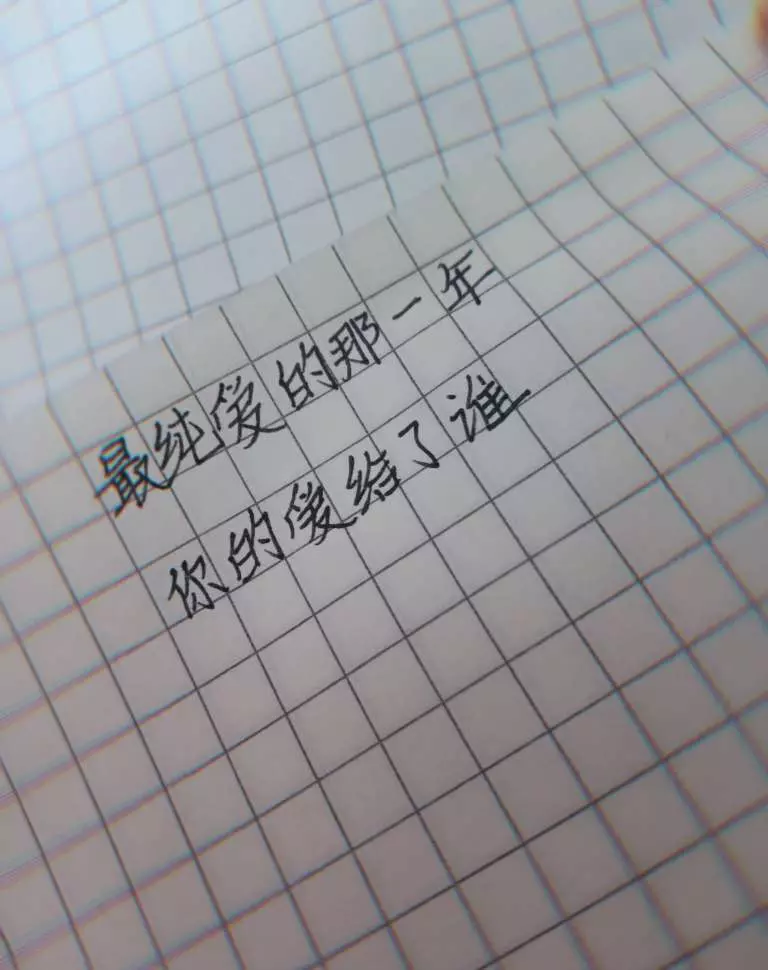 最纯爱的那一年
你的爱给了谁